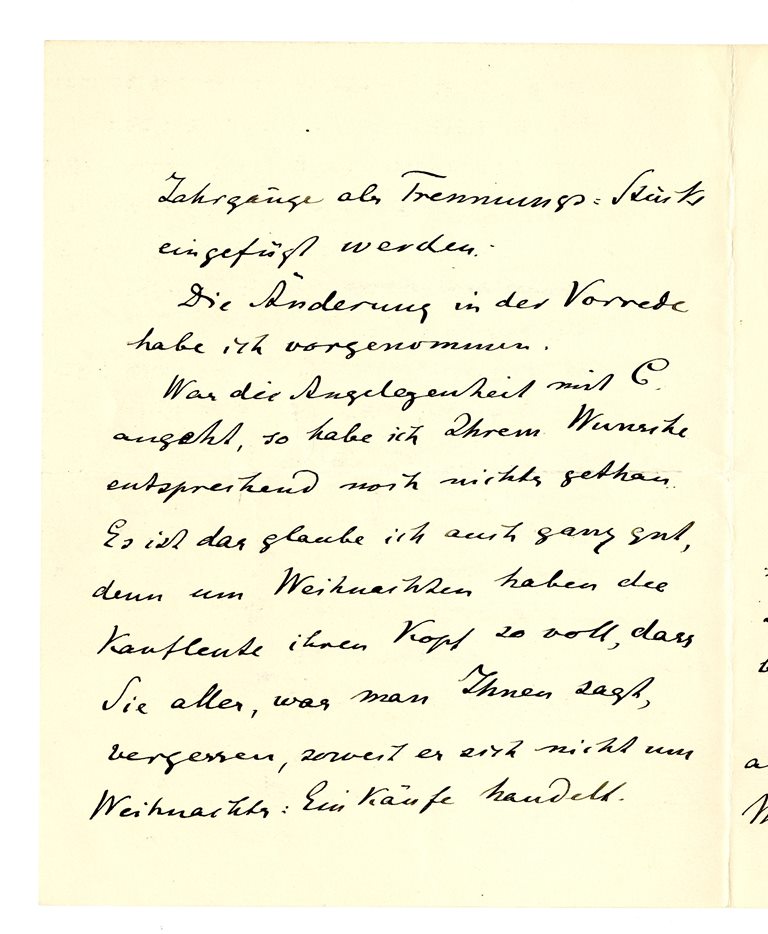 Jahrgänge als Trennungs=Stücke
eingefügt werden.
Die Änderung in der Vorrede
habe ich vorgenommen.
Was die Angelegenheit mit C.
angeht, so habe ich Ihrem Wunsche
entsprechend noch nichts gethan.
Es ist das glaube ich auch ganz gut,
denn um Weihnachten haben die
Kaufleute ihren Kopf so voll, dass
Sie alles, was man Ihnen sagt,
vergessen, soweit es sich nicht um
Weihnachts=Einkäufe handelt.